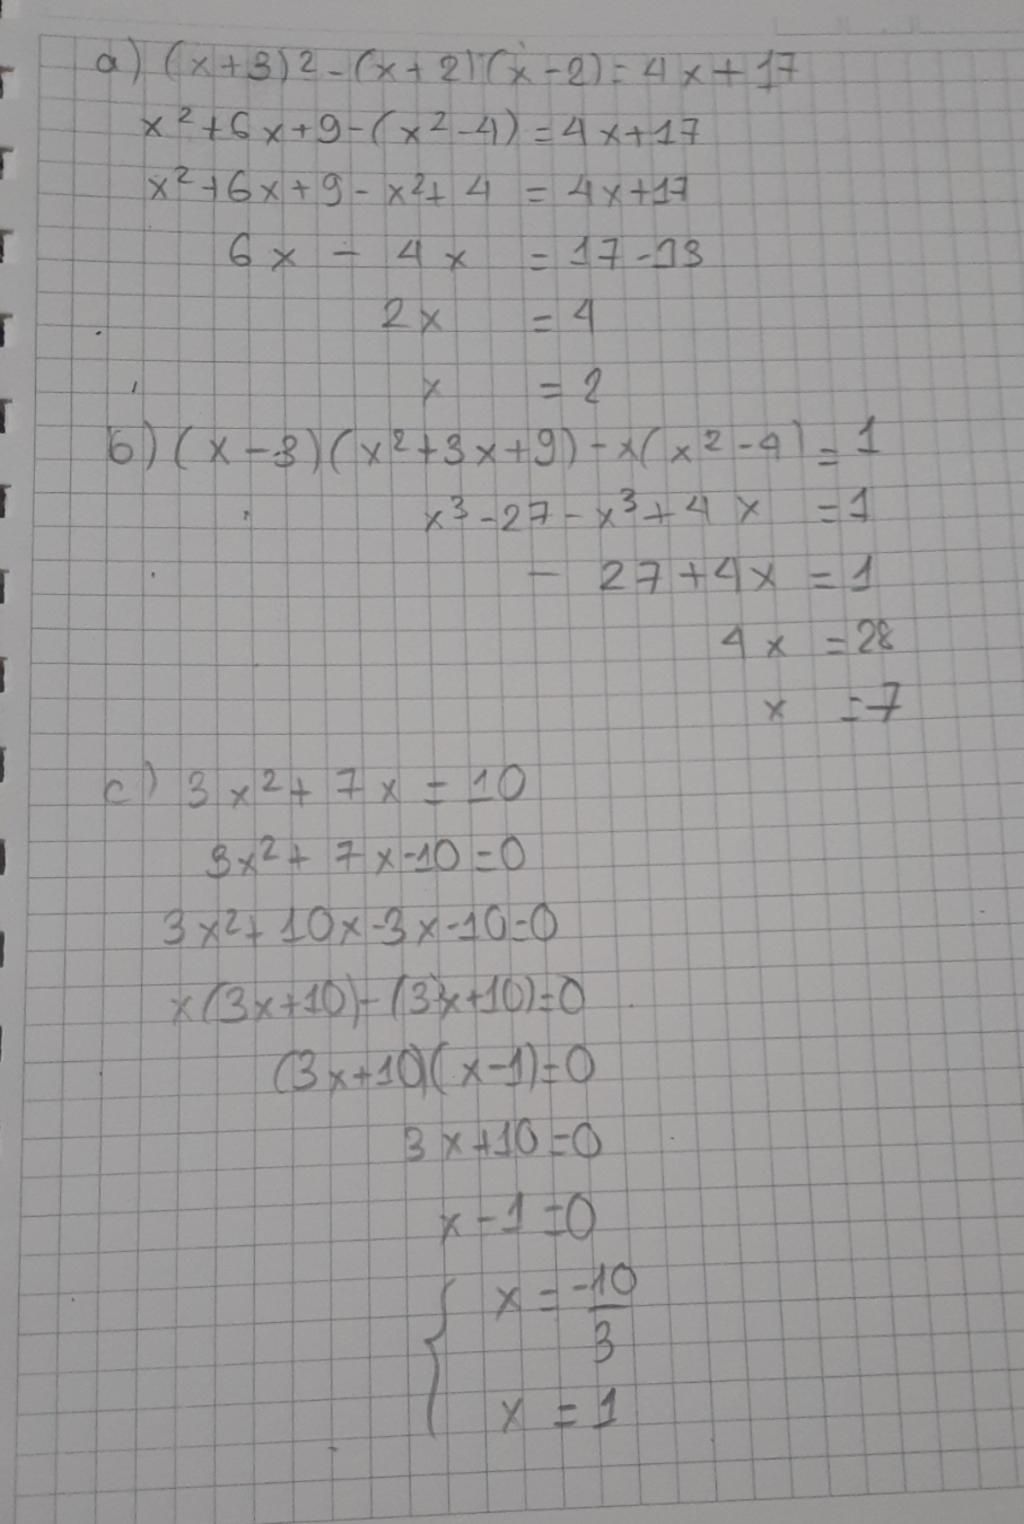 a) (x+3)2-(x+2)(x-2)=4x+17
x²+6x+9-(x²-4)=4x+17
x²+6x+9-x²+4=4x+17
6x-4x=17-13
2x=4
x=2
б) (x-3)(x²+3x+9)-x(x²-4)=1
x³-27-x³+4x=1
-27+4x=1
4x=28
x=7
c) 3x²+7x=10
3x²+7x-10=0
3x²+10x-3x-10=0
x(3x+10)-(3x+10)=0
(3x+10)(x-1)=0
3x+10=0
x-1=0
{ x=-10/3
x=1